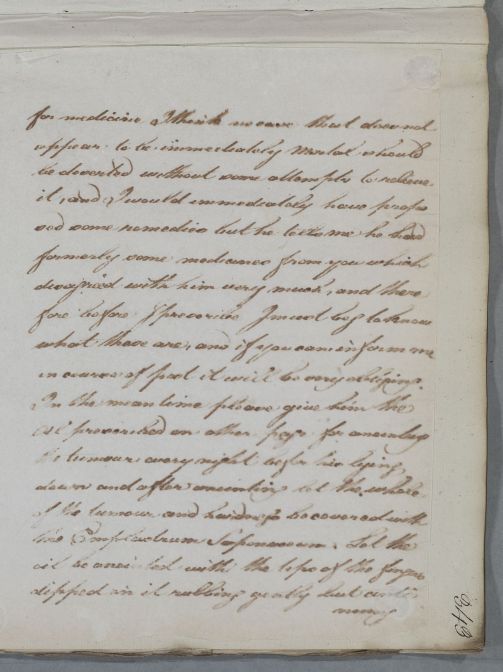 for medicine I think no case that does not
appear to be immediately mortal should
be deserted without some attempts to relieve
it, and I would immediately have propo
sed some remedies but he tells me he had
formerly some medicines from you which
disagreed with him very much, and there
fore before I prescribe I must beg to know
what these are, and if you can inform me
in course of post it will be very obliging.
In the mean time please give him the
oil prescribed on other page for anointing
the tumour every night before his lying
down and after anointing let the whole
of the tumour and hardness be covered with
the Emplastrum Saponaceum. Let the
oil be anointed with the tips of the fingers
dipped in it rubbing gently but
343